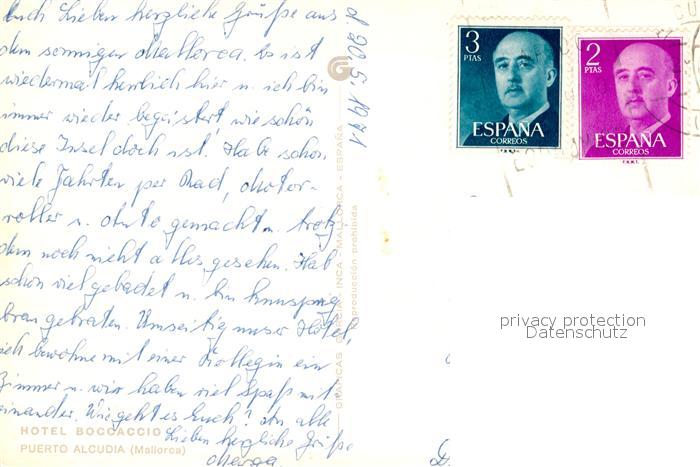 Euch Lieben herzliche Grüße aus
d. 20.5.1971
dem sonnigen Mallorca. Es ist
wiedermal herrlich hier u. ich bin
immer wieder begeistert, wie schön
diese Insel doch ist. Habe schon
viele Fahrten per Rad, Motor-
roller u. Auto gemacht u. trotz-
dem noch nicht alles gesehen. Hab
schon viel gebadet u. bin knusprig
braun gebraten. Umseitig unser Hotel,
ich bewohne mit einer Kollegin ein
Zimmer u. wir haben viel Spaß mit
einander. Wie geht es Euch? An alle
Lieben herzliche Grüße
HOTEL BOCCACCIO
PUERTO ALCUDIA (Mallorca)
INCA - MALLORCA - ESPAÑA
reproducción prohibida
3
PTAS
ESPAÑA
CORREOS
2
PTAS
ESPAÑA
CORREOS
privacy protection
Datenschutz
D.